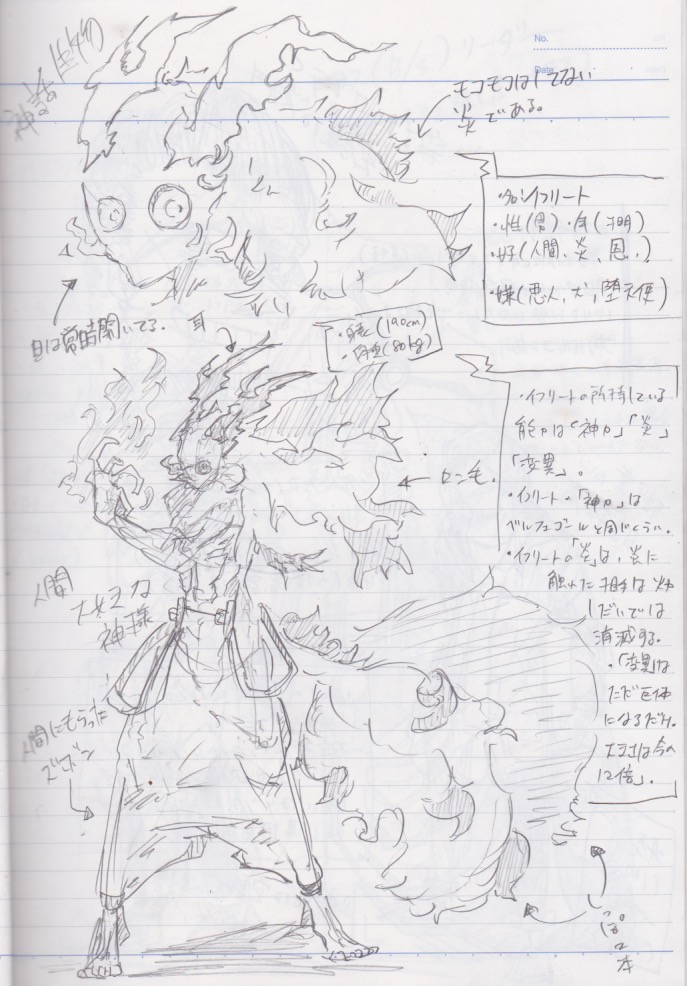 神話生物
No.
Date
モコモコはしてない
炎である。
名(イフリート)
・性(男)・年(不明)
・好(人間、炎、恩、)
・嫌(悪人、犬、堕天使)
目は常時開いてる。
耳
・身長(190cm)
・体重(80kg)
・イフリートの所持している
能力は「神力」「炎」
「変異」。
・イフリートの「神力」は
ベルフェゴールと同じくらい。
・イフリートの「炎」は、炎に
触れた相手は
しだいでは
消滅する。
・「変異」は
ただ巨体
になるだけ。
大きさは今の
12倍」。
人間
大好きな
神様
人間にもらった
ズボン
本